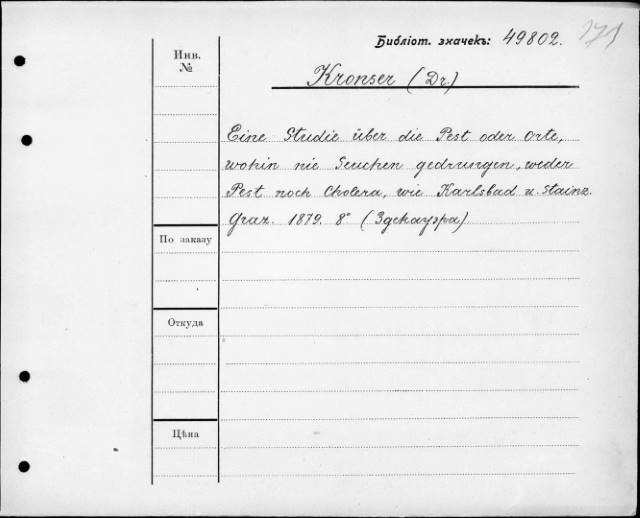 Библіот. значекъ: 49802. 171
Инв. №
Kronser (Dr.)
Eine Studie über die Pest oder Orte,
wohin nie Seuchen gedrungen, weder
Pest noch Cholera, wie Karlsbad u. Stainz.
Graz. 1879. 8° (Здекауэра)
По заказу
Откуда
Цѣна